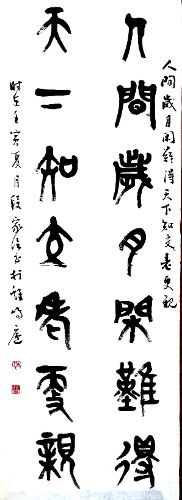 人間歲月閑難得天下知交老更親
人間歲月閑難得
天下知交老更親
时在壬寅夏月段家